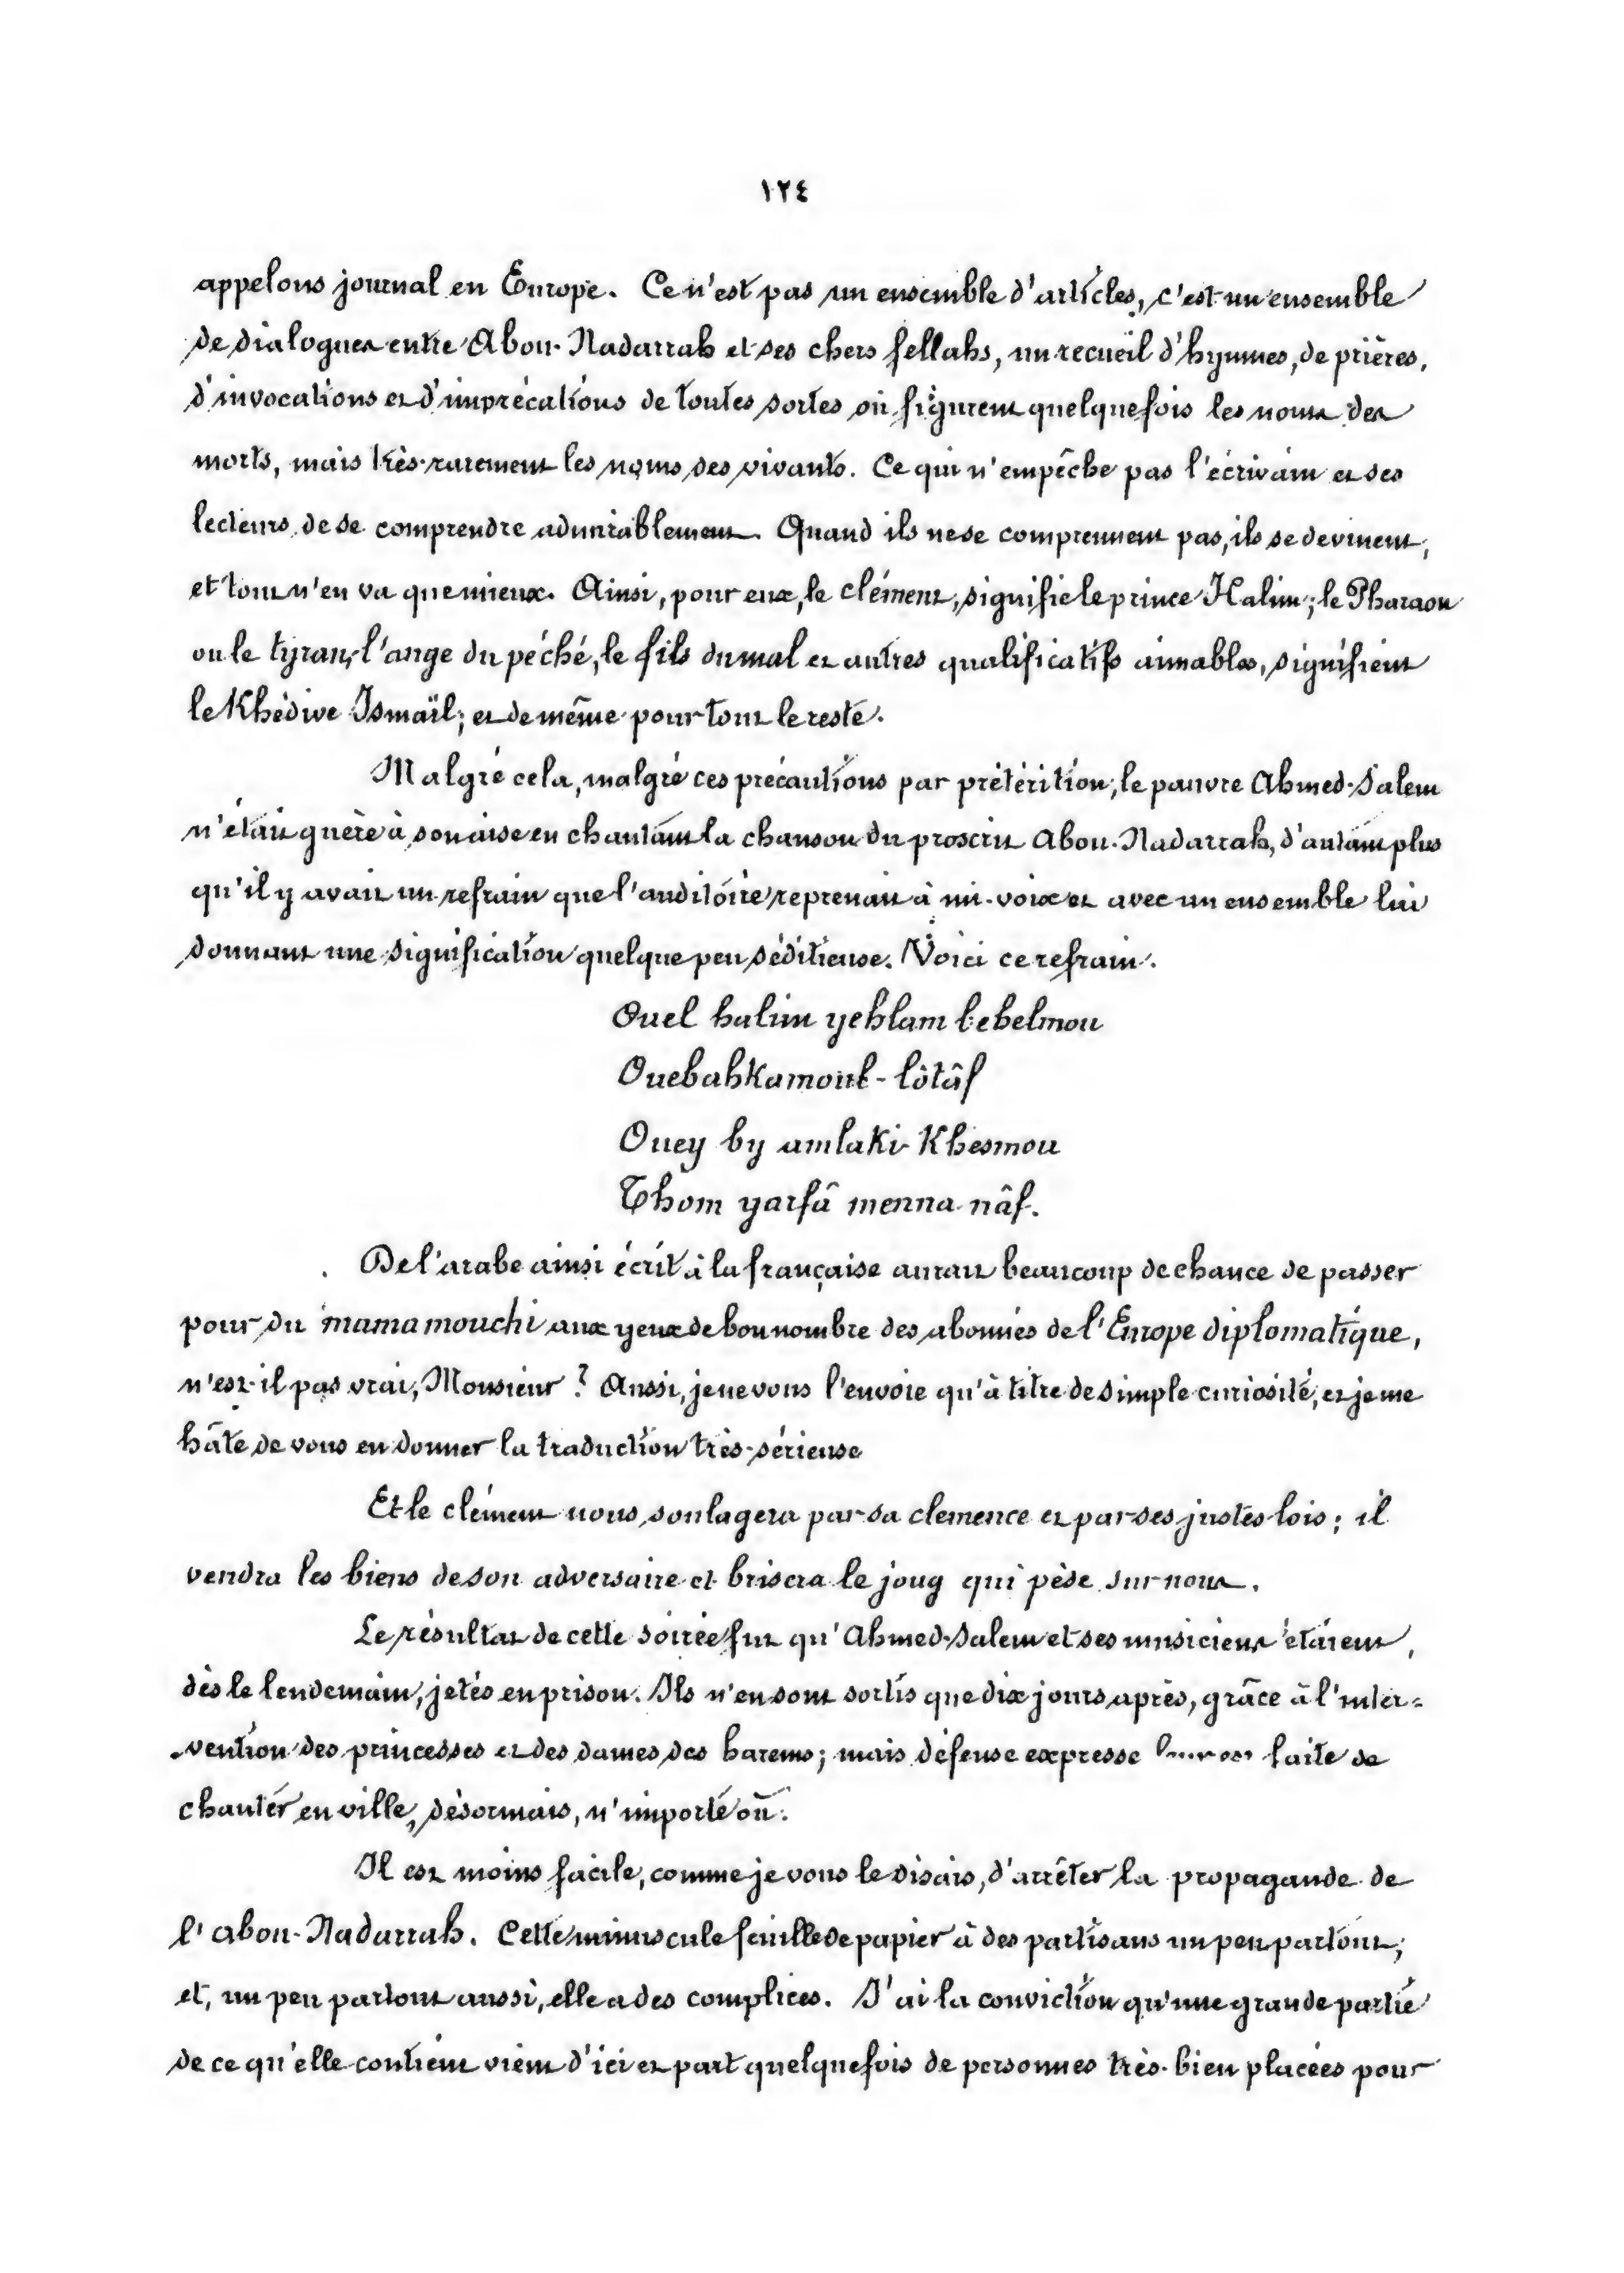 ١٢٤
appelons journal en Europe. Ce n'est pas un ensemble d'articles, c'est un ensemble
de dialogues entre Abou-Nadarrah et ses chers fellahs, un recueil d'hymnes, de prières,
d'invocations et d'imprécations de toutes sortes où figurent quelquefois les noms des
morts, mais très-rarement les noms des vivants. Ce qui n'empêche pas l'écrivain et ses
lecteurs de se comprendre admirablement. Quand ils ne se comprennent pas, ils se devinent,
et tout n'en va que mieux. Ainsi, pour eux, le clément, signifie le prince Halim; le Pharaon
ou le tyran, l'ange du péché, le fils du mal et autres qualificatifs aimables, signifient
le Khédive Ismaïl; et de même pour tout le reste.
Malgré cela, malgré ces précautions par prétérition, le pauvre Ahmed-Salem
n'était guère à son aise en chantant la chanson du proscrit Abou-Nadarrah, d'autant plus
qu'il y avait un refrain que l'auditoire reprenait à mi-voix et avec un ensemble lui
donnant une signification quelque peu séditieuse. Voici ce refrain.
Ouel halim yehlam bebelmou
Ouebahkamoul-lôtâf
Ouey by amlaki Khesmou
Thom yarfâ menna nâf.
De l'arabe ainsi écrit à la française aurait beaucoup de chance de passer
pour du mamamouchi aux yeux de bon nombre des abonnés de l'Europe diplomatique,
n'est-il pas vrai, Monsieur ? Aussi, je ne vous l'envoie qu'à titre de simple curiosité, et je me
hâte de vous en donner la traduction très-sérieuse
Et le clément nous soulagera par sa clemence et par ses justes lois; il
vendra les biens de son adversaire et brisera le joug qui pèse sur nous.
Le résultat de cette soirée fut qu'Ahmed-Salem et ses musiciens étaient,
dès le lendemain, jetés en prison. Ils n'en sont sortis que dix jours après, grâce à l'inter-
-vention des princesses et des dames des harems; mais défense expresse faite de
chanter en ville, désormais, n'importe où.
Il est moins facile, comme je vous le disais, d'arrêter la propagande de
l'abou-Nadarrah. Cette minuscule feuille de papier à des partisans un peu partout;
et, un peu partout aussi, elle a des complices. J'ai la conviction qu'une grande partie
de ce qu'elle contient vient d'ici et part quelquefois de personnes très-bien placées pour